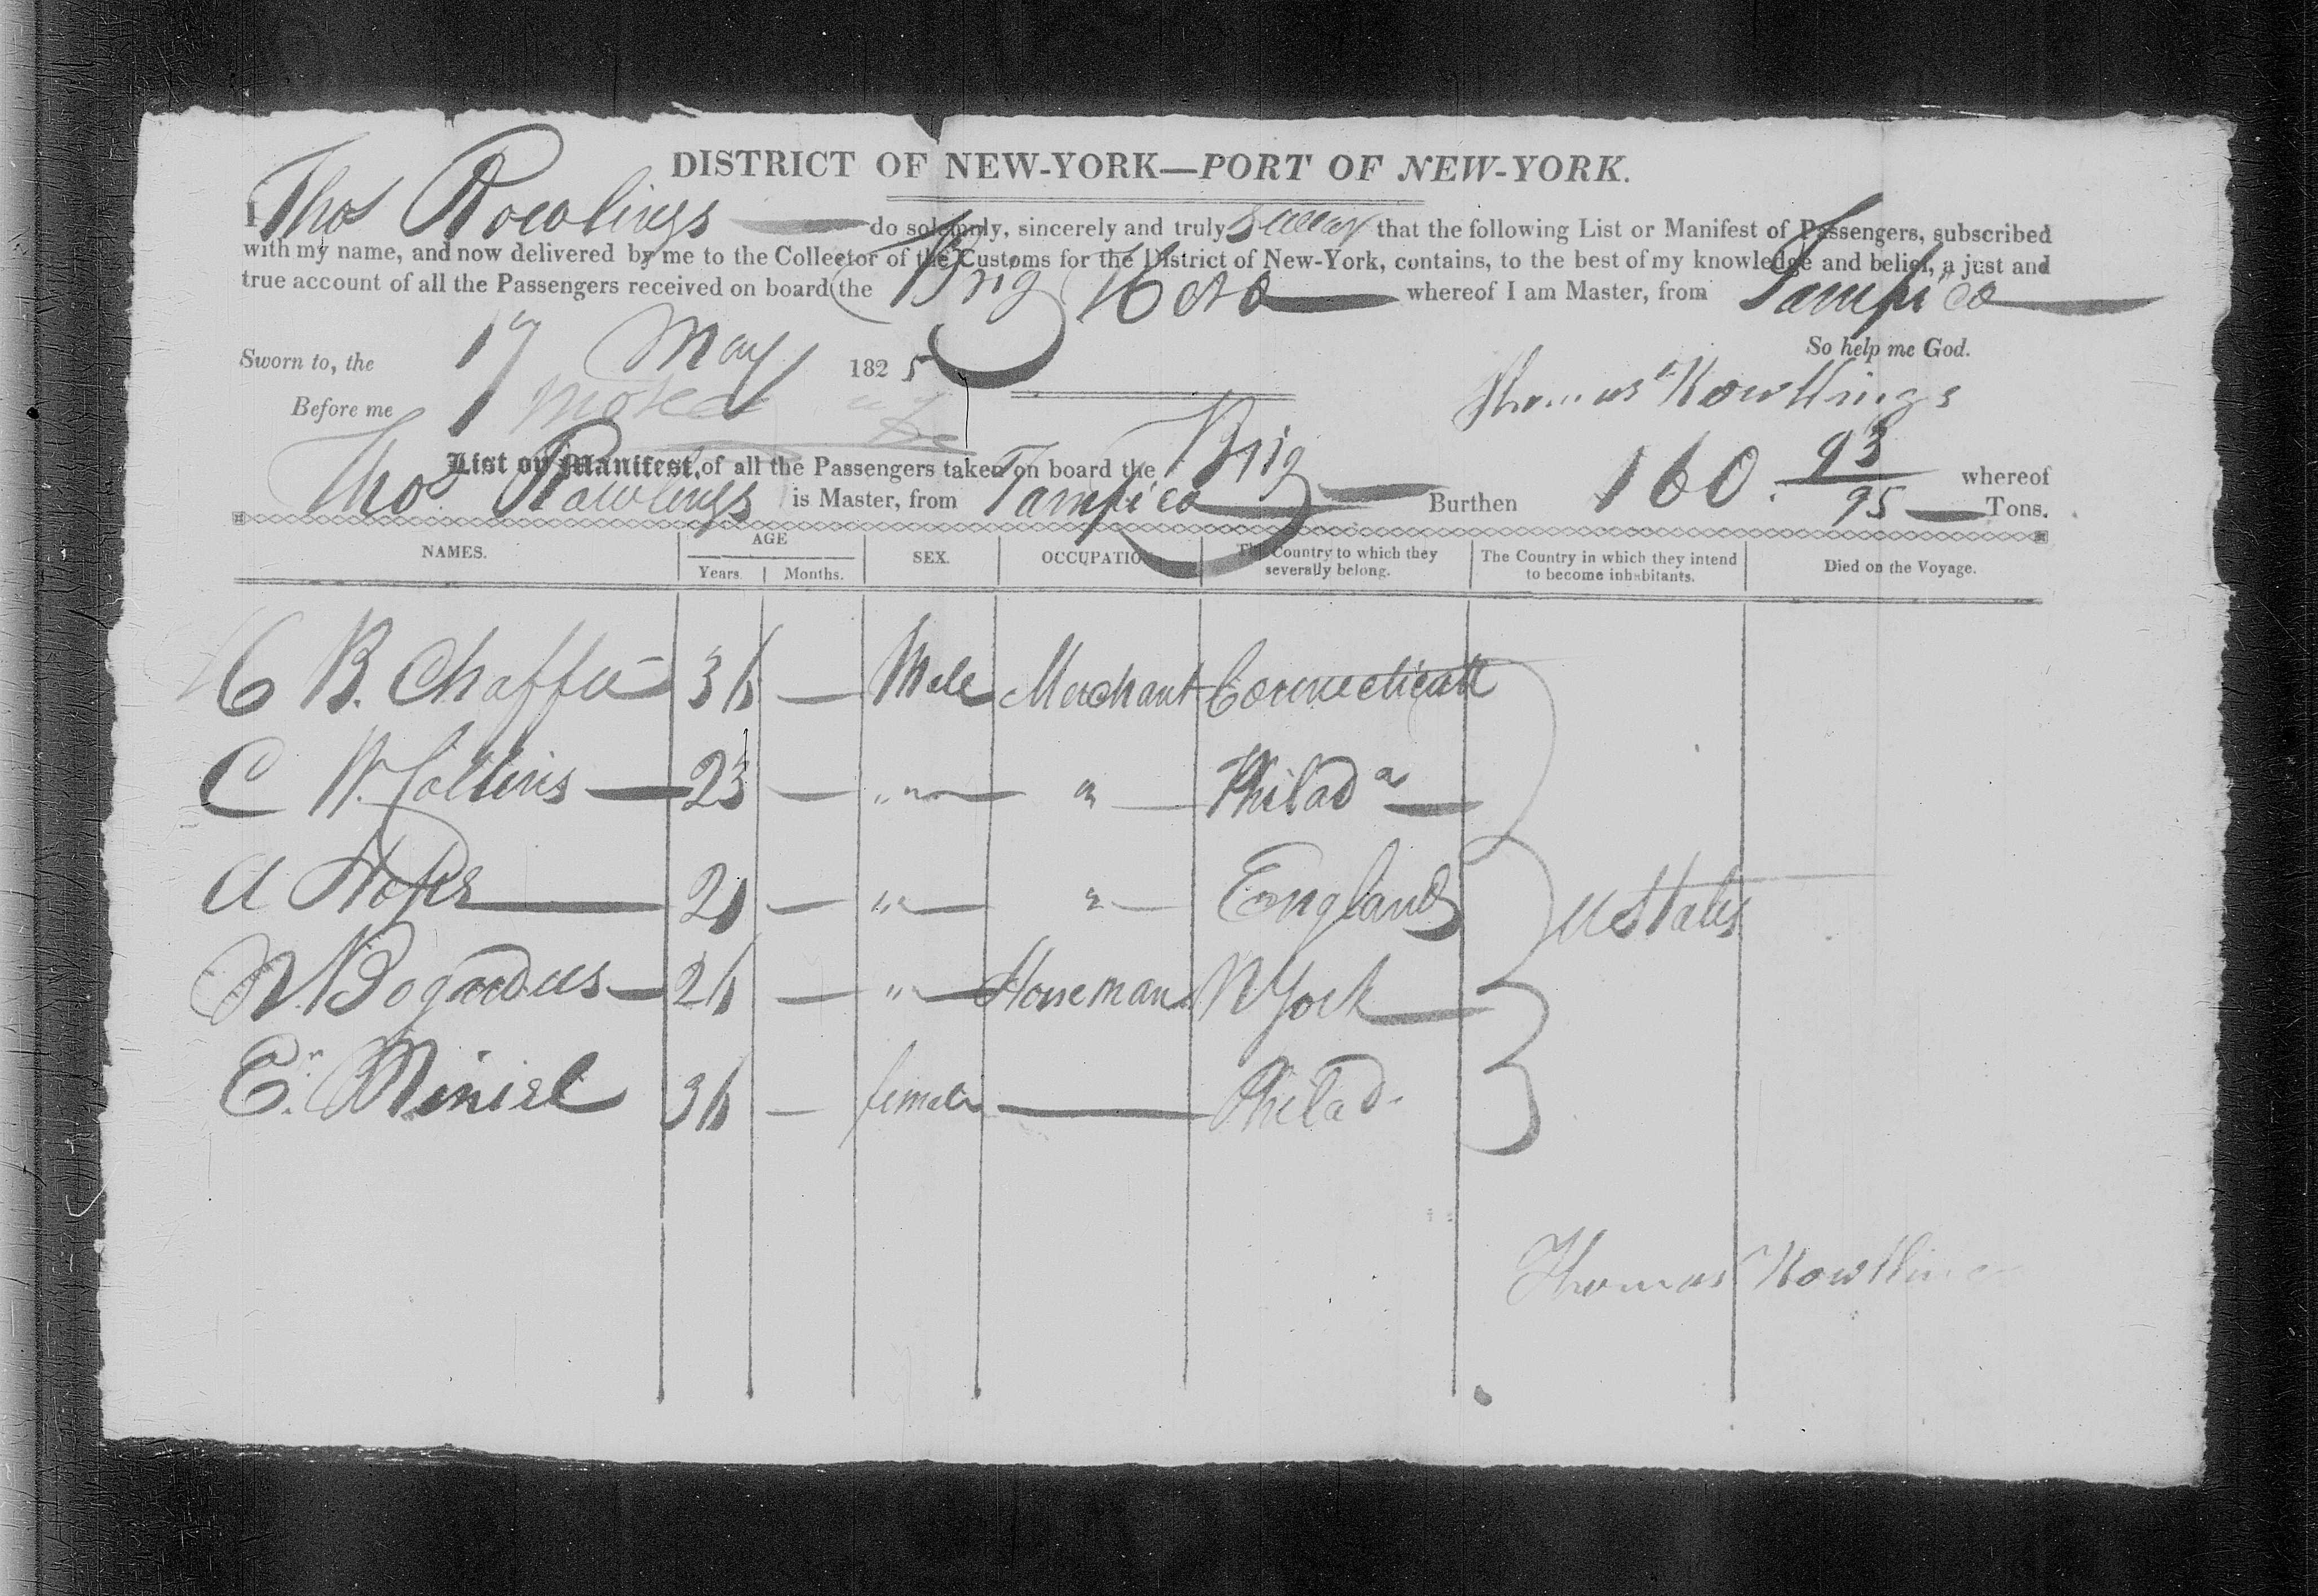 DISTRICT OF NEW-YORK—PORT OF NEW-YORK.
I Thos Rowlings do solemnly, sincerely and truly swear that the following List or Manifest of Passengers, subscribed
with my name, and now delivered by me to the Collector of the Customs for the District of New-York, contains, to the best of my knowledge and belief, a just and
true account of all the Passengers received on board the Brig whereof I am Master, from Tampico
So help me God.
Sworn to, the 17 May 1825
Thomas Rowllings
Before me
List or Manifest, of all the Passengers taken on board the Brig whereof
Thos Rawlings is Master, from Tampico Burthen 160. 93/95 Tons.
NAMES. AGE Years. Months. SEX. OCCUPATION The Country to which they severally belong. The Country in which they intend to become inhabitants. Died on the Voyage.
C B. Chaffee 36 — Male Merchant Connecticutt
C W. Collins — 23 — " — " — Philada —
A — 21 — " — " — England U States
N. Bogardus — 26 — " — Horseman N York —
E. Miniel 36 — female — Philad.
Thomas Rowlling